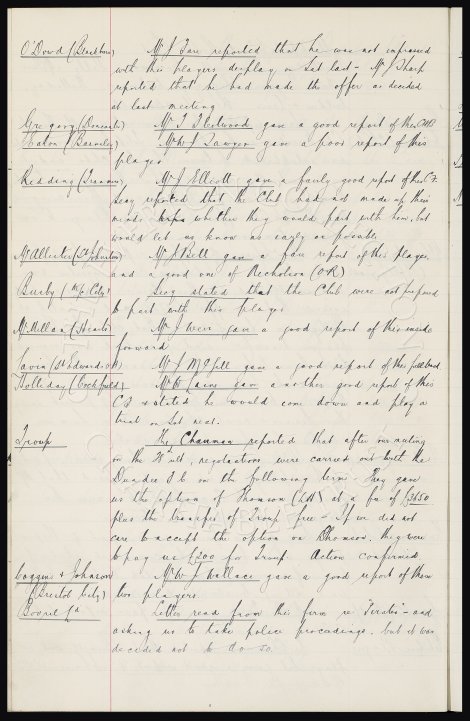 O'Dowd (Blackburn) Mr J Fare reported that he was not impressed
with this players display on Sat last - Mr J Sharp
reported that he had made the offer as decided
at last meeting
Gregory (Doncaster) Mr T Fleetwood gave a good report of this
Eaton (Barnsley) Mr H J Sawyer gave a poor report of this
player
Redding (Tranmere) Mr J Elliott gave a fairly good report of this C.F.
Secy reported that the Club had not made up their
mind whether they would part with him, but
would let us know as early as possible
McAllister (St Johnstone) Mr J Bell gave a fair report of this player
and a good one of Nicholson (OR)
Busby (M/c City) Secy stated that the Club were not prepared
to part with this player
McMillan (Hearts) Mr J Weir gave a good report of this inside
forward
Lavin (St Edwards OB) Mr J McGill gave a good report of this full back
Holliday (Cockfield) Mr W Cairns gave another good report of this
CF & stated he would come down and play a
trial on Sat next.
Troup The Chairman reported that after our meeting
on the ult, negotiations were carried out with the
Dundee F.C on the following terms - They gave
us the option of Thomson (LH) at a fee of £3650
plus the transfer of Troup free - If we did not
care to accept the option on Thomson, they were
to pay us £200 for Troup Action confirmed
Coggins & Johnson Mr W J Wallace gave a good report of these
(Bristol City) two players
Boore Ld Letter read from this firm re "Pirates" - and
asking us to take police proceedings, but it was
decided not to do so.